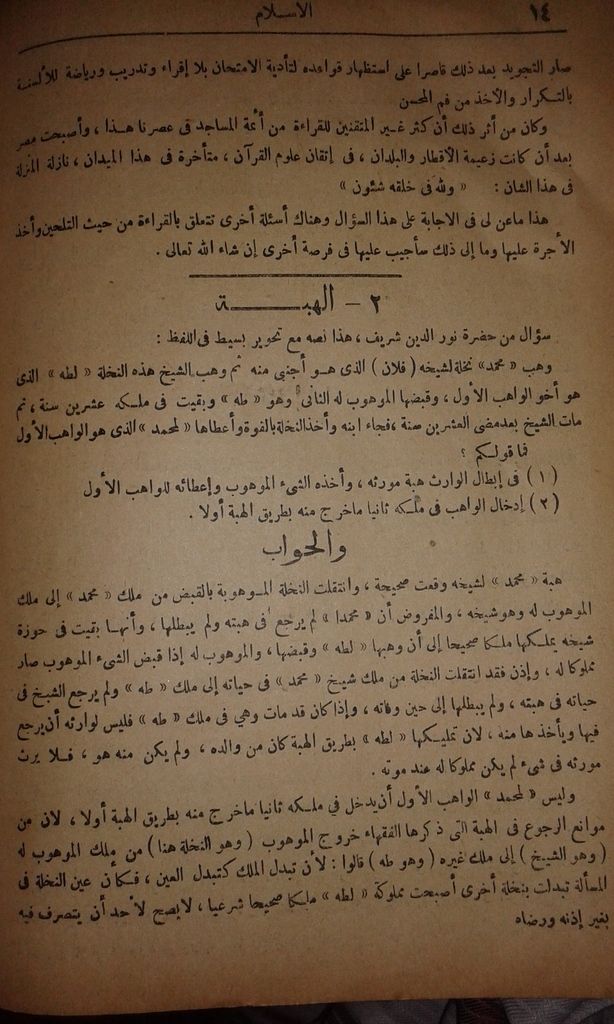 ١٤
الاسلام
صار التجويد بعد ذلك قاصرا على استظهار قواعده لتأدية الامتحان بلا إقراء وتدريب ورياضة للألسنة
بالتكرار والآخذ من فم المحسن
وكان من أثر ذلك أن كثر غير المتقنين للقراءة من أئمة المساجد فى عصرنا هذا ، وأصبحت مصر
بعد أن كانت زعيمة الأقطار والبلدان ، فى إتقان علوم القرآن ، متأخرة فى هذا الميدان ، نازلة المنزلة
فى هذا الشان : « ولله فى خلقه شئون »
هذا ماعن لى فى الاجابة على هذا السؤال وهناك أسئلة أخرى تتعلق بالقراءة من حيث التلحين وأخذ
الأجرة عليها وما إلى ذلك سأجيب عليها فى فرصة أخرى إن شاء الله تعالى .
٢ - الهبة
سؤال من حضرة نور الدين شريف ، هذا نصه مع تحوير بسيط فى اللفظ :
وهب « محمد » نخلة لشيخه ( فلان ) الذى هو أجنبى منه ثم وهب الشيخ هذه النخلة « لطه » الذى
هو أخو الواهب الأول ، وقبضها الموهوب له الثانى وهو « طه » وبقيت فى ملكه عشرين سنة ، ثم
مات الشيخ بعد مضى العشرين سنة ، فجاء ابنه وأخذ النخلة بالقوة وأعطاها « لمحمد » الذى هو الواهب الأول
فما قولكم ؟
( ١ ) فى إبطال الوارث هبة مورثه ، وأخذه الشىء الموهوب وإعطائه للواهب الأول
( ٢ ) إدخال الواهب فى ملكه ثانيا ماخرج منه بطريق الهبة أولا .
والجواب
هبة « محمد » لشيخه وقعت صحيحة ، وانتقلت النخلة الموهوبة بالقبض من ملك « محمد » إلى ملك
الموهوب له وهو شيخه ، والمفروض أن « محمدا » لم يرجع فى هبته ولم يبطلها ، وأنها بقيت فى حوزة
شيخه يملكها ملكا صحيحا إلى أن وهبها « لطه » وقبضها ، والموهوب له إذا قبض الشىء الموهوب صار
مملوكا له ، وإذن فقد انتقلت النخلة من ملك شيخ « محمد » فى حياته إلى ملك « طه » ولم يرجع الشيخ فى
حياته فى هبته ، ولم يبطلها إلى حين وفاته ، وإذا كان قد مات وهى فى ملك « طه » فليس لوارثه أن يرجع
فيها ويأخذها منه ، لان تمليكها « لطه » بطريق الهبة كان من والده ، ولم يكن منه هو ، فلا يرث
مورثه فى شىء لم يكن مملوكا له عند موته .
وليس « لمحمد » الواهب الأول أن يدخل فى ملكه ثانيا ماخرج منه بطريق الهبة أولا ، لان من
موانع الرجوع فى الهبة التى ذكرها الفقهاء خروج الموهوب ( وهو النخلة هنا ) من ملك الموهوب له
( وهو الشيخ ) إلى ملك غيره ( وهو طه ) قالوا : لأن تبدل الملك كتبدل العين ، فكأن عين النخلة فى
المسألة تبدلت بنخلة أخرى أصبحت مملوكة « لطه » ملكا صحيحا شرعيا ، لايصح لأحد أن يتصرف فيه
بغير إذنه ورضاه